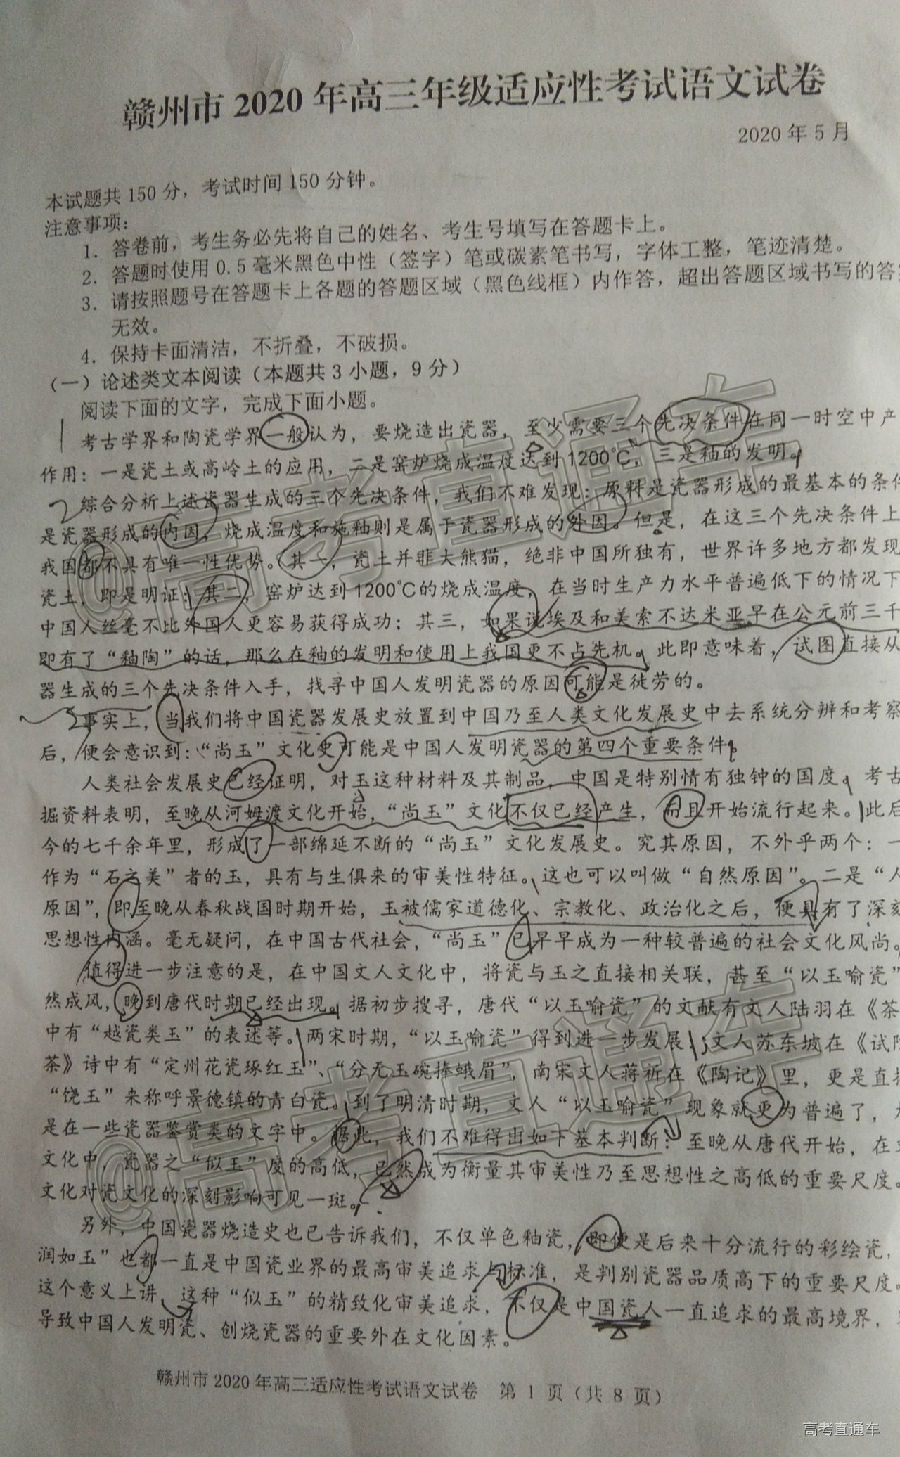 赣州市 2020 年高三年级适应性考试语文试卷
2020 年 5 月
本试题共 150 分，考试时间 150 分钟。
注意事项：
1．答卷前，考生务必先将自己的姓名、考生号填写在答题卡上。
2．答题时使用 0.5 毫米黑色中性（签字）笔或碳素笔书写，字体工整，笔迹清楚。
3．请按照题号在答题卡上各题的答题区域（黑色线框）内作答，超出答题区域书写的答
无效。
4．保持卡面清洁，不折叠，不破损。
（一）论述类文本阅读（本题共 3 小题，9 分）
阅读下面的文字，完成下面小题。
考古学界和陶瓷学界一般认为，要烧造出瓷器，至少需要三个先决条件在同一时空中产
作用：一是瓷土或高岭土的应用，二是窑炉烧成温度达到 1200℃，三是釉的发明。
综合分析上述瓷器生成的三个先决条件，我们不难发现：原料是瓷器形成的最基本的条件
是瓷器形成的内因，烧成温度和施釉则是属于瓷器形成的外因。但是，在这三个先决条件上
我国都不具有唯一性优势。其一，瓷土并非大熊猫，绝非中国所独有，世界许多地方都发现
瓷土，即是明证；其二，窑炉达到 1200℃的烧成温度，在当时生产力水平普遍低下的情况下
中国人丝毫不比外国人更容易获得成功；其三，如果说埃及和美索不达米亚早在公元前三千
即有了“釉陶”的话，那么在釉的发明和使用上我国更不占先机。此即意味着，试图直接从
器生成的三个先决条件入手，找寻中国人发明瓷器的原因可能是徒劳的。
事实上，当我们将中国瓷器发展史放置到中国乃至人类文化发展史中去系统分辨和考察
后，便会意识到：“尚玉”文化史可能是中国人发明瓷器的第四个重要条件。
人类社会发展史已经证明，对玉这种材料及其制品，中国是特别情有独钟的国度。考古
掘资料表明，至晚从河姆渡文化开始，“尚玉”文化不仅已经产生，而且开始流行起来。此后
今的七千余年里，形成了一部绵延不断的“尚玉”文化发展史。究其原因，不外乎两个：一
作为“石之美”者的玉，具有与生俱来的审美性特征。这也可以叫做“自然原因”。二是“人
原因”，即至晚从春秋战国时期开始，玉被儒家道德化、宗教化、政治化之后，便具有了深刻
思想性内涵。毫无疑问，在中国古代社会，“尚玉”已早早成为一种较普遍的社会文化风尚。
值得进一步注意的是，在中国文人文化中，将瓷与玉之直接相关联，甚至“以玉喻瓷”
然成风，晚到唐代时期已经出现。据初步搜寻，唐代“以玉喻瓷”的文献有文人陆羽在《茶
中有“越瓷类玉”的表述等。两宋时期，“以玉喻瓷”得到进一步发展，文人苏东坡在《试院
茶》诗中有“定州花瓷琢红玉”、“分无玉碗捧蛾眉”，南宋文人蒋祈在《陶记》里，更是直接
“饶玉”来称呼景德镇的青白瓷。到了明清时期，文人“以玉喻瓷”现象就更为普遍了，
是在一些瓷器鉴赏类的文字中。据此，我们不难得出如下基本判断：至晚从唐代开始，在
文化中，瓷器之“似玉”度的高低，已然成为衡量其审美性乃至思想性之高低的重要尺度。
文化对瓷文化的深刻影响可见一斑。
另外，中国瓷器烧造史也已告诉我们，不仅单色釉瓷，即使是后来十分流行的彩绘瓷，
润如玉”也都一直是中国瓷业界的最高审美追求与标准，是判别瓷器品质高下的重要尺度。
这个意义上讲，这种“似玉”的精致化审美追求，不仅是中国瓷人一直追求的最高境界，
导致中国人发明瓷、创烧瓷器的重要外在文化因素。
赣州市 2020 年高三适应性考试语文试卷 第 1 页（共 8 页）
@高考直通车
@高考直通车
高考直通车